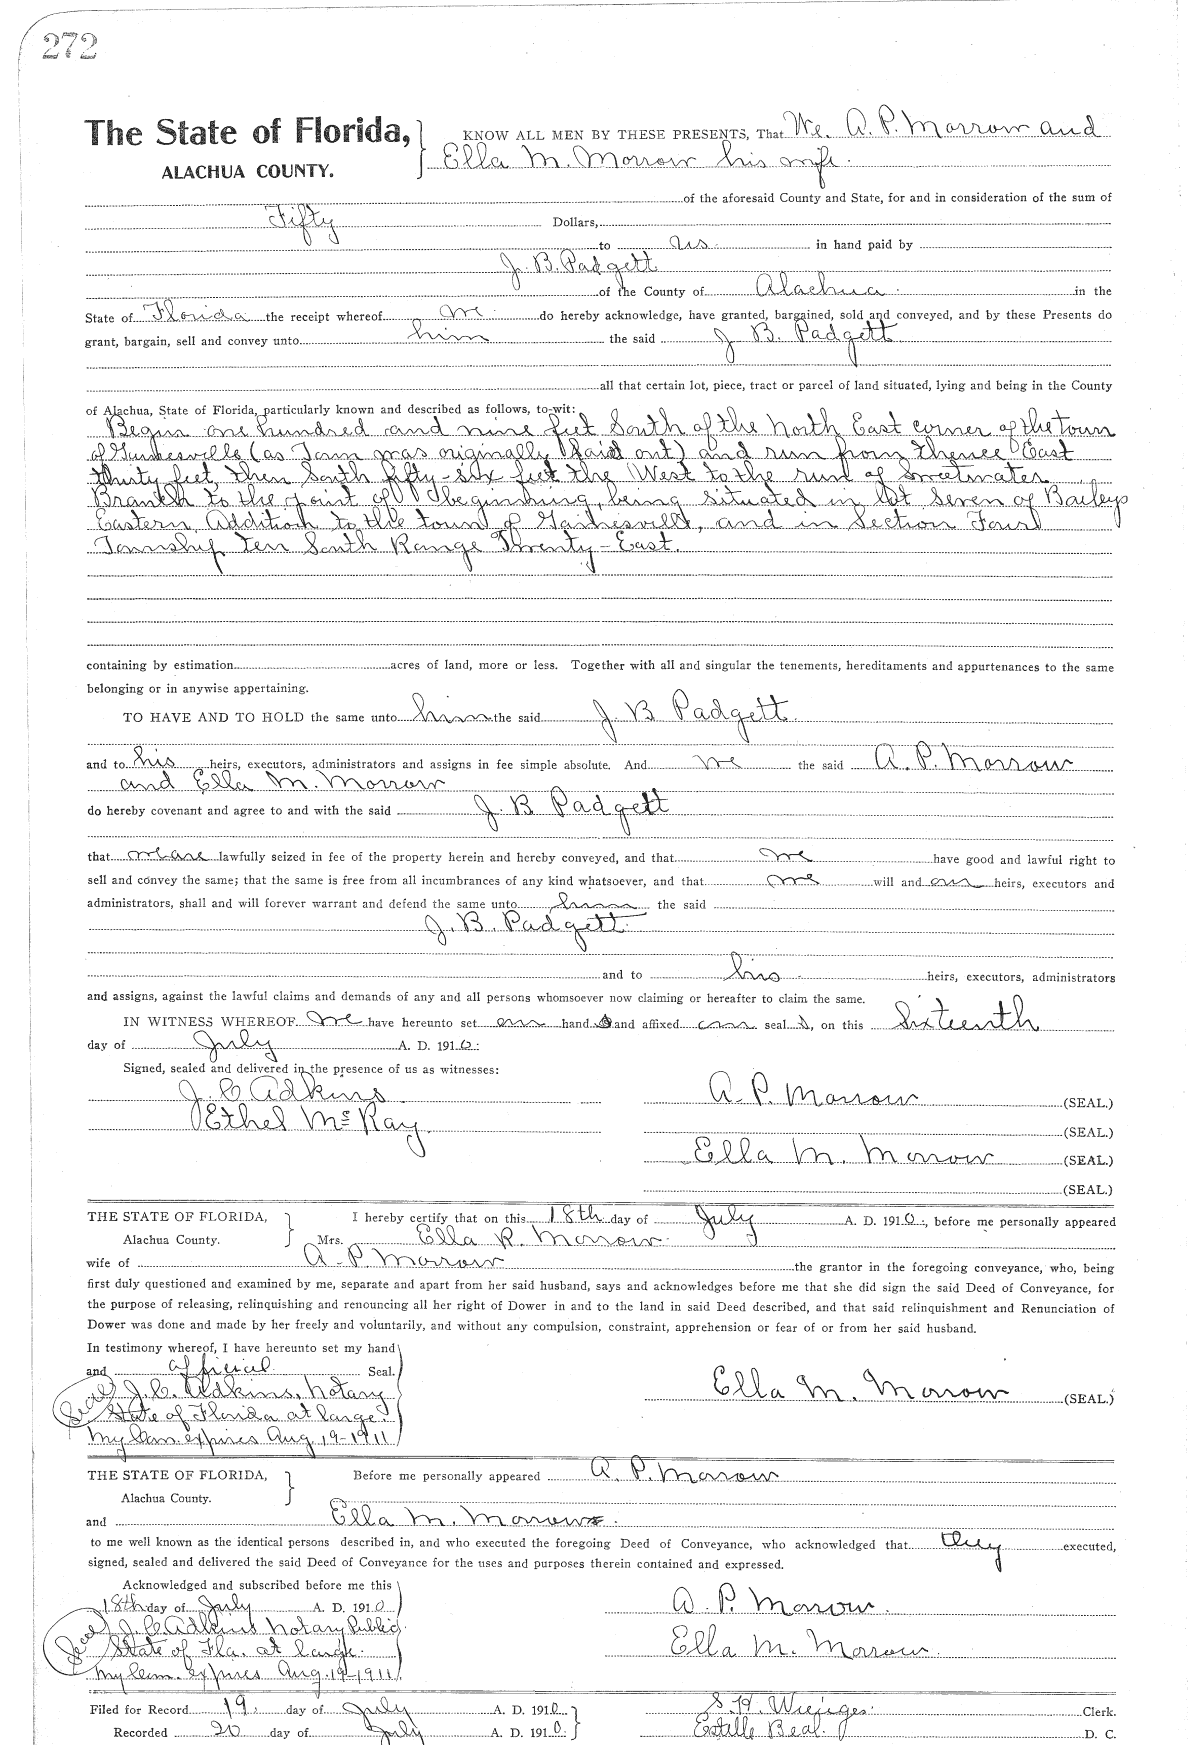 272
The State of Florida,
ALACHUA COUNTY.
KNOW ALL MEN BY THESE PRESENTS, That We. A. P. Morrow and
Ella M. Morrow his wife.
of the aforesaid County and State, for and in consideration of the sum of
Fifty Dollars,
to us in hand paid by
J. B. Padgett
of the County of Alachua in the
State of Florida the receipt whereof we do hereby acknowledge, have granted, bargained, sold and conveyed, and by these Presents do
grant, bargain, sell and convey unto him the said J B. Padgett
all that certain lot, piece, tract or parcel of land situated, lying and being in the County
of Alachua, State of Florida, particularly known and described as follows, to-wit:
Begin one hundred and nine feet South of the North East corner of the town
of Gainesville (as Town was originally laid out) and run from thence East
thirty feet, then South fifty-six feet the West to the run of Sweetwater
Branch to the point of beginning, being situated in lot Seven of Baileys
Eastern Addition to the town of Gainesville, and in Section Four
Township ten South Range Twenty-East.
containing by estimation acres of land, more or less. Together with all and singular the tenements, hereditaments and appurtenances to the same
belonging or in anywise appertaining.
TO HAVE AND TO HOLD the same unto him the said J. B Padgett
and to his heirs, executors, administrators and assigns in fee simple absolute. And we the said A. P. Morrow
and Ella M. Morrow
do hereby covenant and agree to and with the said J. B Padgett
that we are lawfully seized in fee of the property herein and hereby conveyed, and that we have good and lawful right to
sell and convey the same; that the same is free from all incumbrances of any kind whatsoever, and that we will and our heirs, executors and
administrators, shall and will forever warrant and defend the same unto him the said
J. B. Padgett
and to his heirs, executors, administrators
and assigns, against the lawful claims and demands of any and all persons whomsoever now claiming or hereafter to claim the same.
IN WITNESS WHEREOF We have hereunto set our hand s and affixed our seal s, on this Sixteenth
day of July A. D. 1910.
Signed, sealed and delivered in the presence of us as witnesses:
J. C Adkins
Ethel McRay.
A. P. Morrow (SEAL.)
(SEAL.)
Ella M. Morrow (SEAL.)
(SEAL.)
THE STATE OF FLORIDA,
Alachua County.
I hereby certify that on this 18th day of July A. D. 1910., before me personally appeared
Mrs. Ella R. Morrow.
wife of A. P. Morrow the grantor in the foregoing conveyance, who, being
first duly questioned and examined by me, separate and apart from her said husband, says and acknowledges before me that she did sign the said Deed of Conveyance, for
the purpose of releasing, relinquishing and renouncing all her right of Dower in and to the land in said Deed described, and that said relinquishment and Renunciation of
Dower was done and made by her freely and voluntarily, and without any compulsion, constraint, apprehension or fear of or from her said husband.
In testimony whereof, I have hereunto set my hand
and official Seal.
Seal J. C. Adkins, Notary
State of Florida at large.
My Com. expires Aug. 19-1911
Ella M. Morrow (SEAL.)
THE STATE OF FLORIDA,
Alachua County.
Before me personally appeared A. P. Morrow
and Ella M. Morrow.
to me well known as the identical persons described in, and who executed the foregoing Deed of Conveyance, who acknowledged that they executed,
signed, sealed and delivered the said Deed of Conveyance for the uses and purposes therein contained and expressed.
Acknowledged and subscribed before me this
18th day of July A. D. 1910
Seal J. C Adkins Notary Public
State of Fla. at large.
My Com. expires Aug. 19-1911.
A. P. Morrow.
Ella M. Morrow.
Filed for Record 19. day of July A. D. 1910.
Recorded 20 day of July A. D. 1910.
S. H. Wienges. Clerk.
Estelle Beal. D. C.